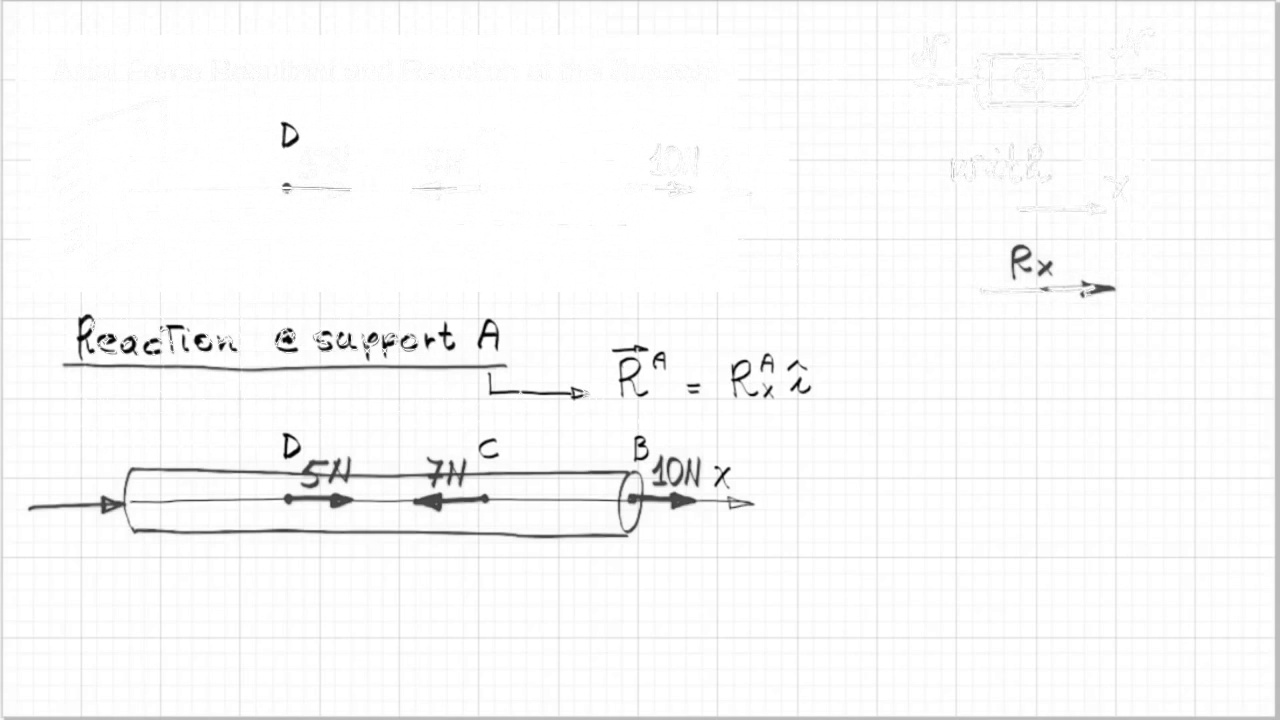 Axial Force Resultant and Reaction at the Supports
N N
D
5N 7N 10N X
with
X
Rx
Reaction @ support A
R^A = Rx^A î
D C B
5N 7N 10N X